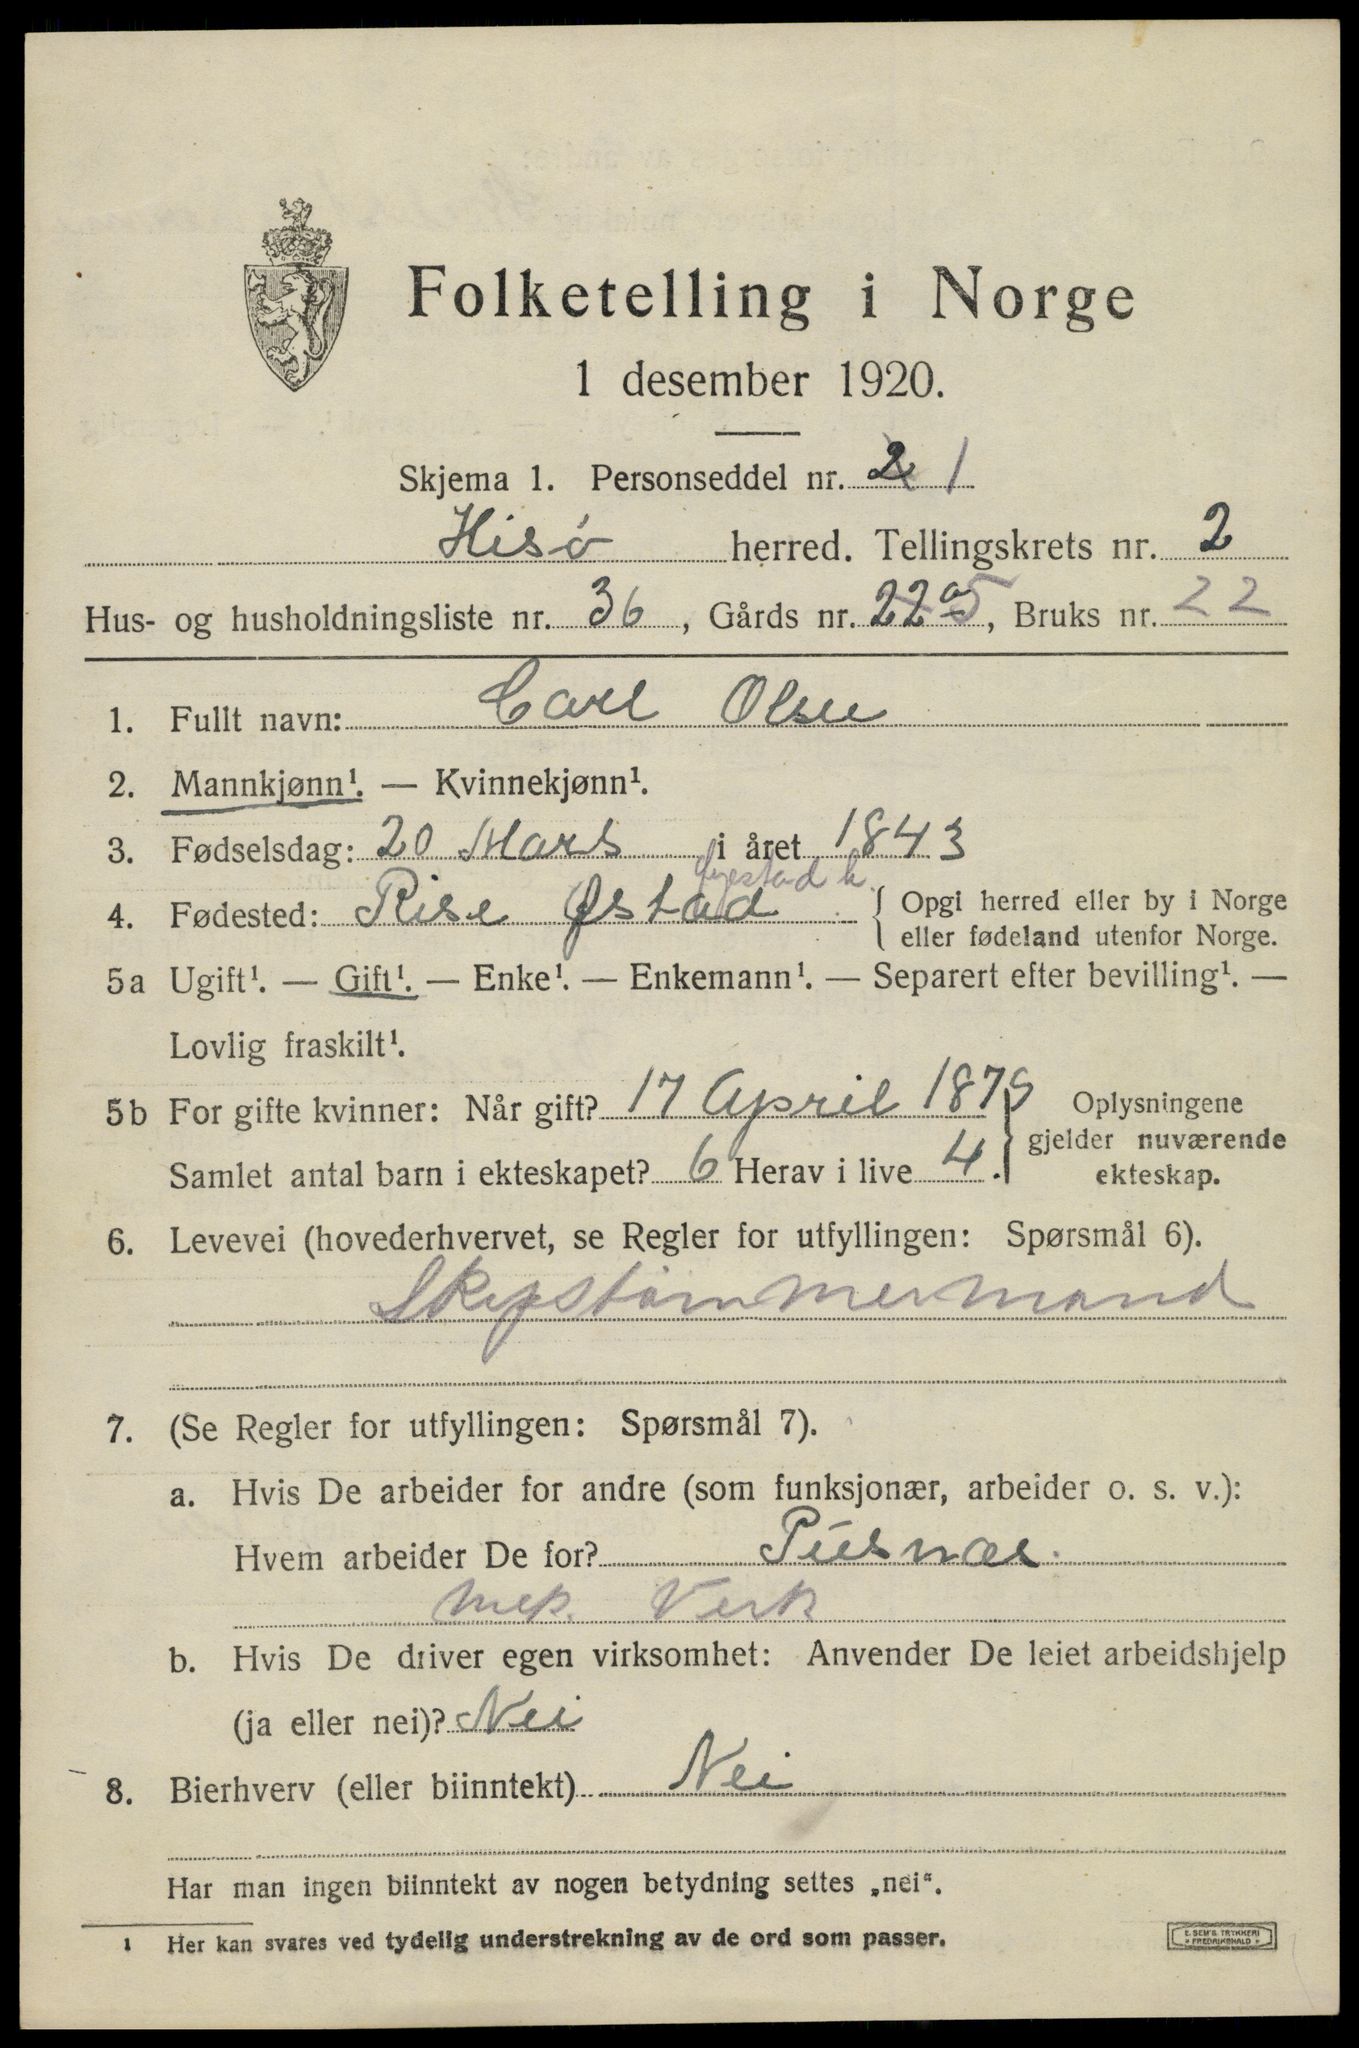 Folketelling i Norge
1 desember 1920.
Skjema 1. Personseddel nr. 2 1
Hisø herred. Tellingskrets nr. 2
Hus- og husholdningsliste nr. 36, Gårds nr. 22a 5, Bruks nr. 22
1. Fullt navn: Carl Olsen
2. Mannkjønn¹. — Kvinnekjønn¹.
3. Fødselsdag: 20 Mars i året 1843
4. Fødested: Rise Østad { Opgi herred eller by i Norge
eller fødeland utenfor Norge.
5a Ugift¹. — Gift¹. — Enke¹. — Enkemann¹. — Separert efter bevilling¹. —
Lovlig fraskilt¹.
5b For gifte kvinner: Når gift? 17 April 1879 } Oplysningene
gjelder nuværende
Samlet antal barn i ekteskapet? 6 Herav i live 4.
ekteskap.
6. Levevei (hovederhvervet, se Regler for utfyllingen: Spørsmål 6).
Skipstømmermand
7. (Se Regler for utfyllingen: Spørsmål 7).
a. Hvis De arbeider for andre (som funksjonær, arbeider o. s. v.):
Hvem arbeider De for? Pusnæs.
mek. Verk
b. Hvis De driver egen virksomhet: Anvender De leiet arbeidshjelp
(ja eller nei)? Nei
8. Bierhverv (eller biinntekt) Nei
Har man ingen biinntekt av nogen betydning settes „nei“.
1 Her kan svares ved tydelig understrekning av de ord som passer.
E. SEM'S TRYKKERI
FREDRIKSHALD